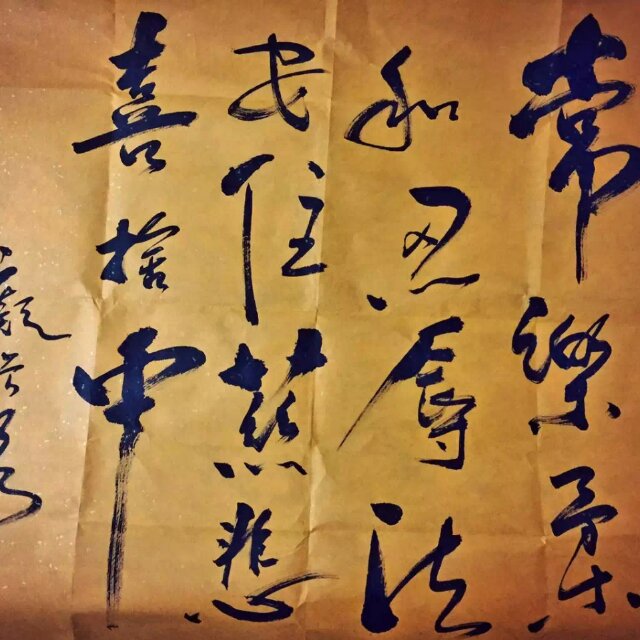 常樂柔
和忍辱法
安住慈悲
喜捨中